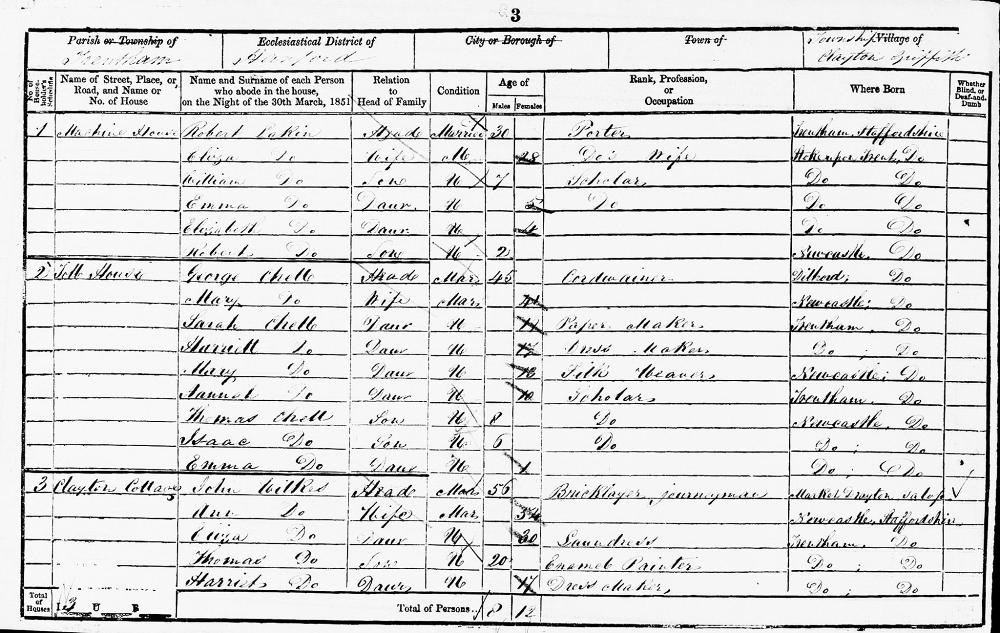 3
Parish or Township of Ecclesiastical District of City or Borough of Town of Township Village of
Trentham Hanford Clayton Griffith
No. of House-holder's Schedule Name of Street, Place, or Road, and Name or No. of House Name and Surname of each Person who abode in the house, on the Night of the 30th March, 1851 Relation to Head of Family Condition Age of Males Females Rank, Profession, or Occupation Where Born Whether Blind, or Deaf-and-Dumb
1 Machine House Robert Lakin Heade Married 30 Porter Trentham, Staffordshire
Eliza Do Wife M 28 Do's Wife Stoke upon Trent, Do
William Do Sone U 7 Scholar Do Do
Emma Do Daur U 5 Do Do Do
Elizabeth Do Daur U 4 Do Do
Robert Do Son U 2 Newcastle, Do
2 Toll House George Chell Heade Mar 45 Cordwainer Do
Mary Do Wife Mar Newcastle, Do
Sarah Chell Daur U Paper Maker Trentham, Do
Harriett Do Daur U Dress Maker Do ; Do
Mary Do Daur U 13 Silk Weaver Newcastle; Do
Hannah Do Daur U 10 Scholar Trentham, Do
Thomas Chell Son U 8 Do Newcastle, Do
Isaac Do Son U 6 Do Do ; Do
Emma Do Daur U 1 Do ; Do
3 Clayton Cottage John Wilkes Heade Mar 56 Bricklayer, journeyman Market Drayton, Salop
Ann Do Wife Mar 54 Newcastle, Staffordshire
Eliza Do Daur U 30 Laundress Trentham, Do
Thomas Do Son U 20 Enamel Painter Do ; Do
Harriet Do Daur U 17 Dress Maker Do ; Do
Total of Houses I 3 U B Total of Persons 8 12